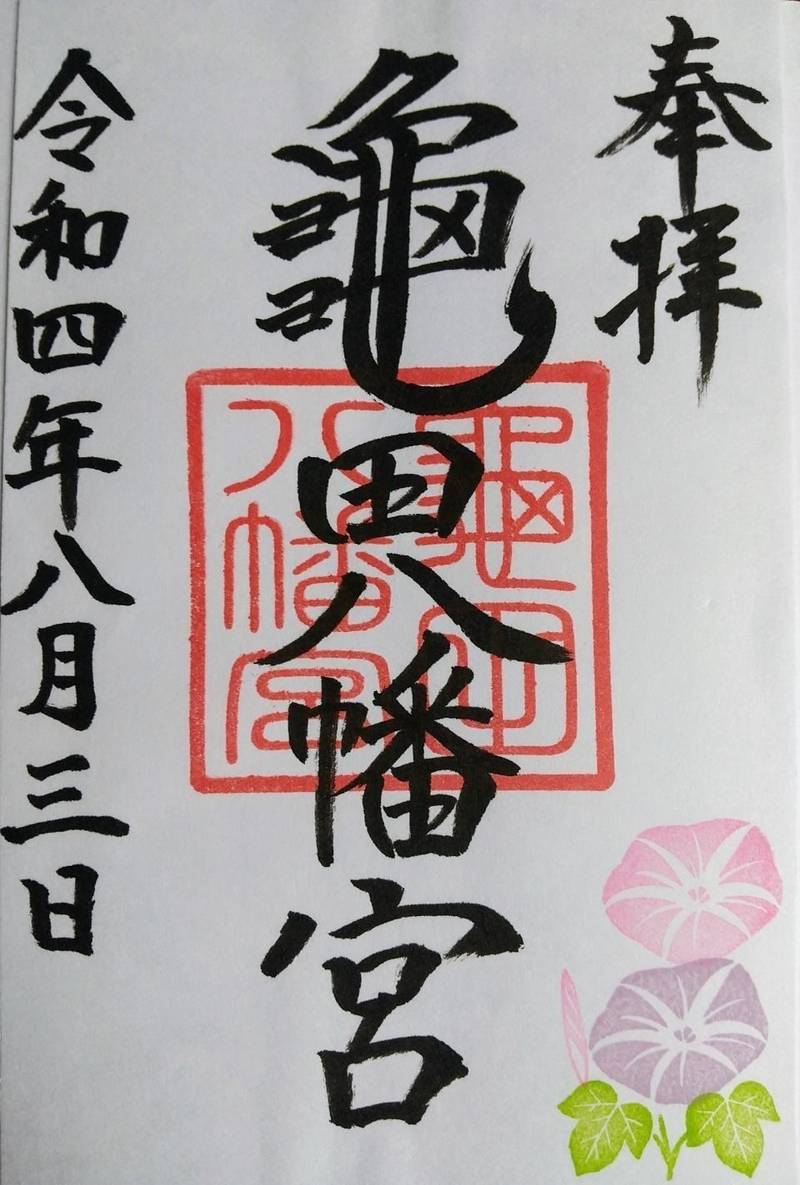 奉拝
龜田八幡宮
龜田
八幡宮
令和四年八月三日